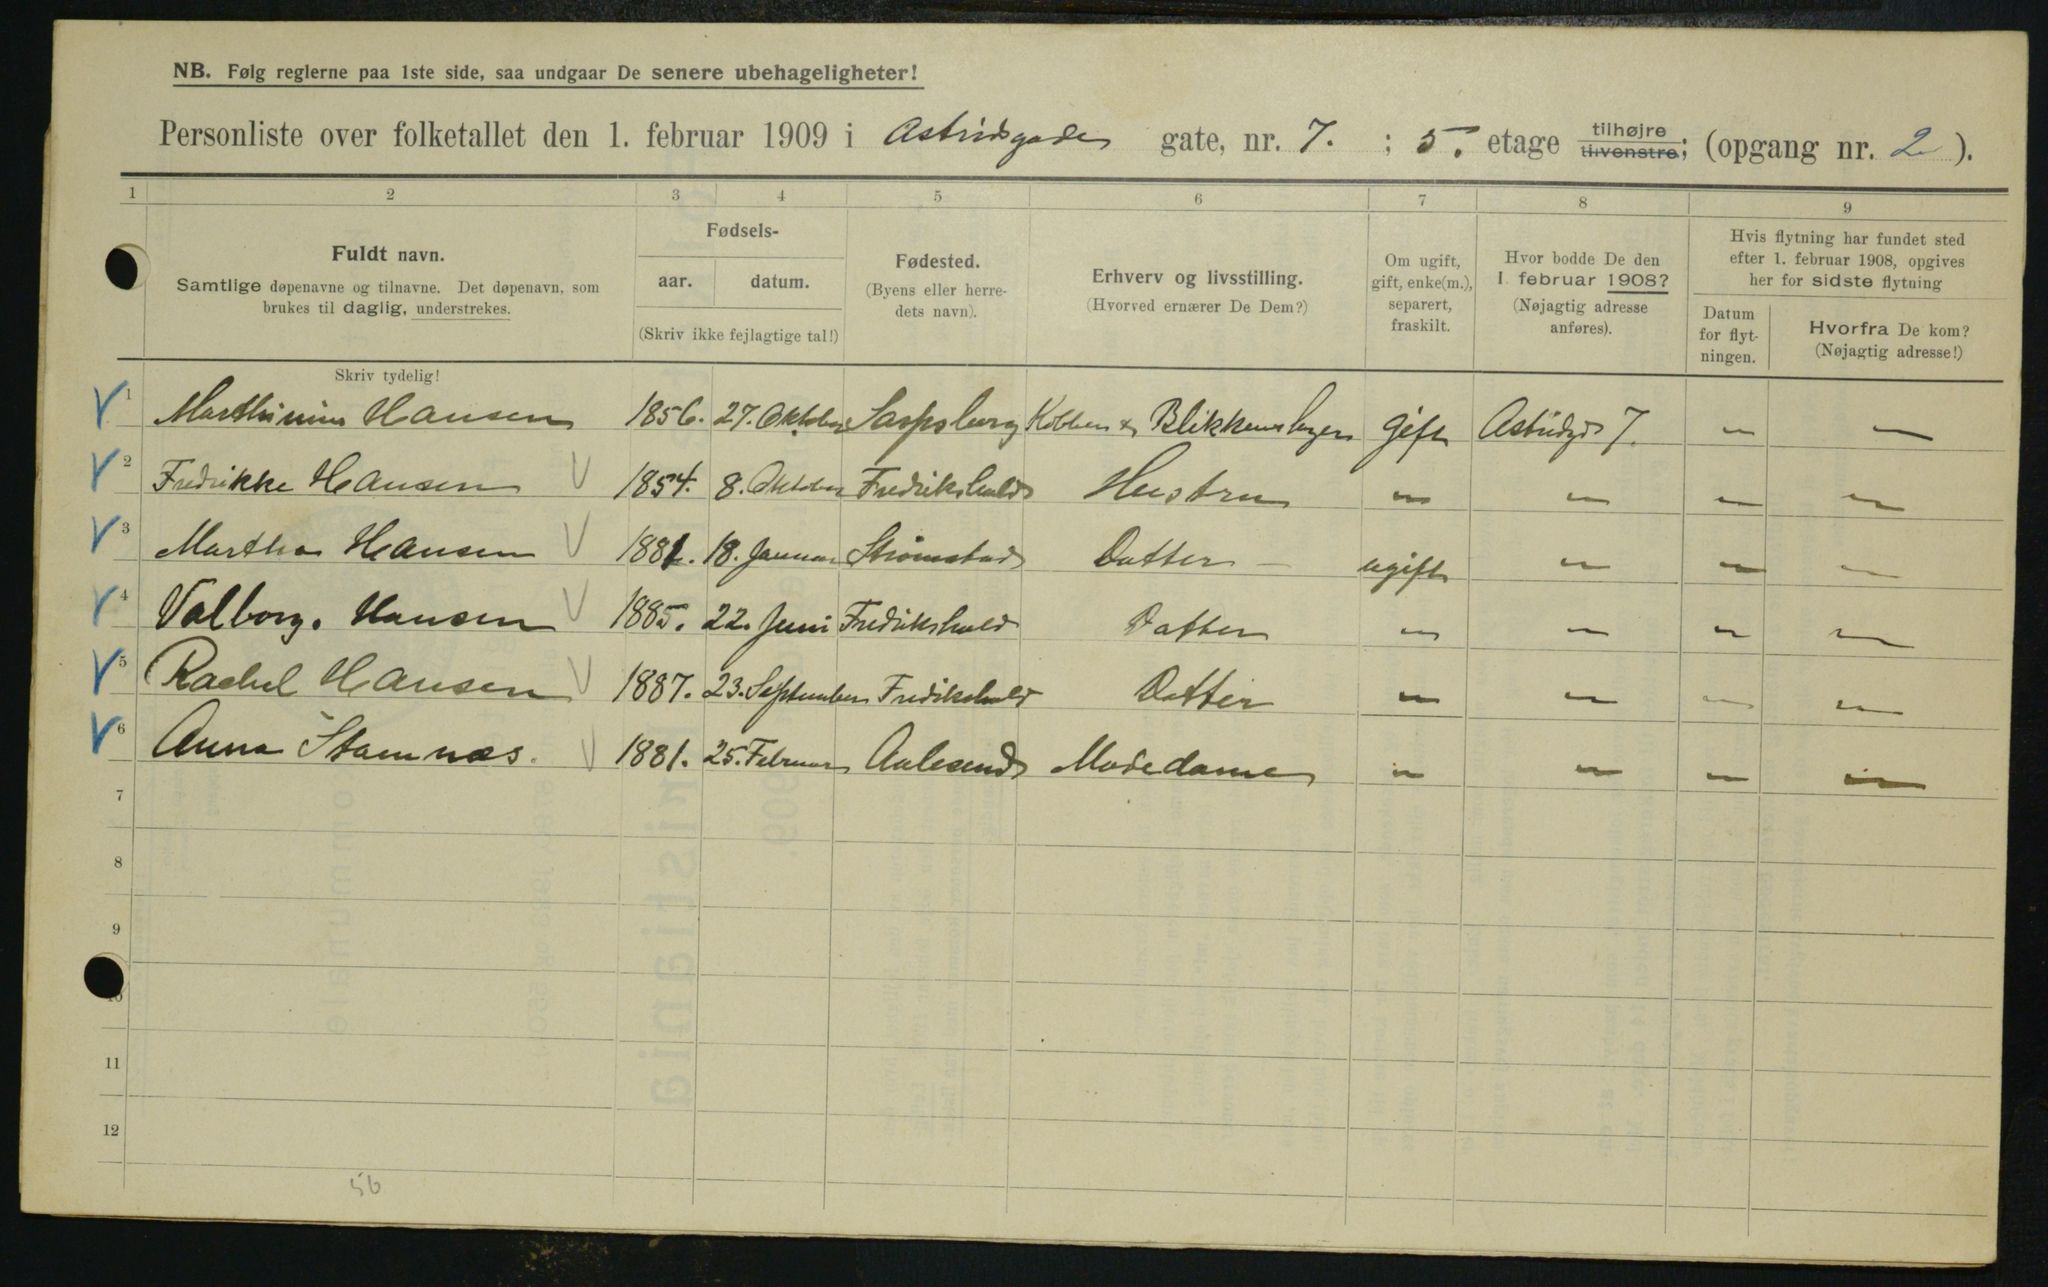 NB. Følg reglerne paa 1ste side, saa undgaar De senere ubehageligheter!
Personliste over folketallet den 1. februar 1909 i Astridsgade gate, nr. 7. ; 5. etage tilhøjre tilvenstre; (opgang nr. 2 ).
1 2 3 4 5 6 7 8 9
Fuldt navn.
Samtlige døpenavne og tilnavne. Det døpenavn, som
brukes til daglig, understrekes.
Fødsels-
aar. datum.
(Skriv ikke fejlagtige tal!)
Fødested.
(Byens eller herre-
dets navn).
Erhverv og livsstilling.
(Hvorved ernærer De Dem?)
Om ugift,
gift, enke(m.),
separert,
fraskilt.
Hvor bodde De den
1. februar 1908?
(Nøjagtig adresse
anføres).
Hvis flytning har fundet sted
efter 1. februar 1908, opgives
her for sidste flytning
Datum
for flyt-
ningen.
Hvorfra De kom?
(Nøjagtig adresse!)
Skriv tydelig!
1 Marthinius Hansen 1856. 27. Oktober Sarpsborg Kobber & Blikkenslager gift Astridgd 7. " "
2 Fredrikke Hansen 1854. 8. Oktober Fredrikshald Hustru " " " "
3 Martha Hansen 1881. 18. Januar Strømstad Datter - ugift " " "
4 Valborg. Hansen 1885. 22. Juni Fredrikshald Datter " " " "
5 Rachel Hansen 1887. 23. September Fredikshald Datter " " " "
6 Anna Stamnæs. 1881. 25. Februar Aalesund Modedame " " " "
7
8
9
10
11
12
56